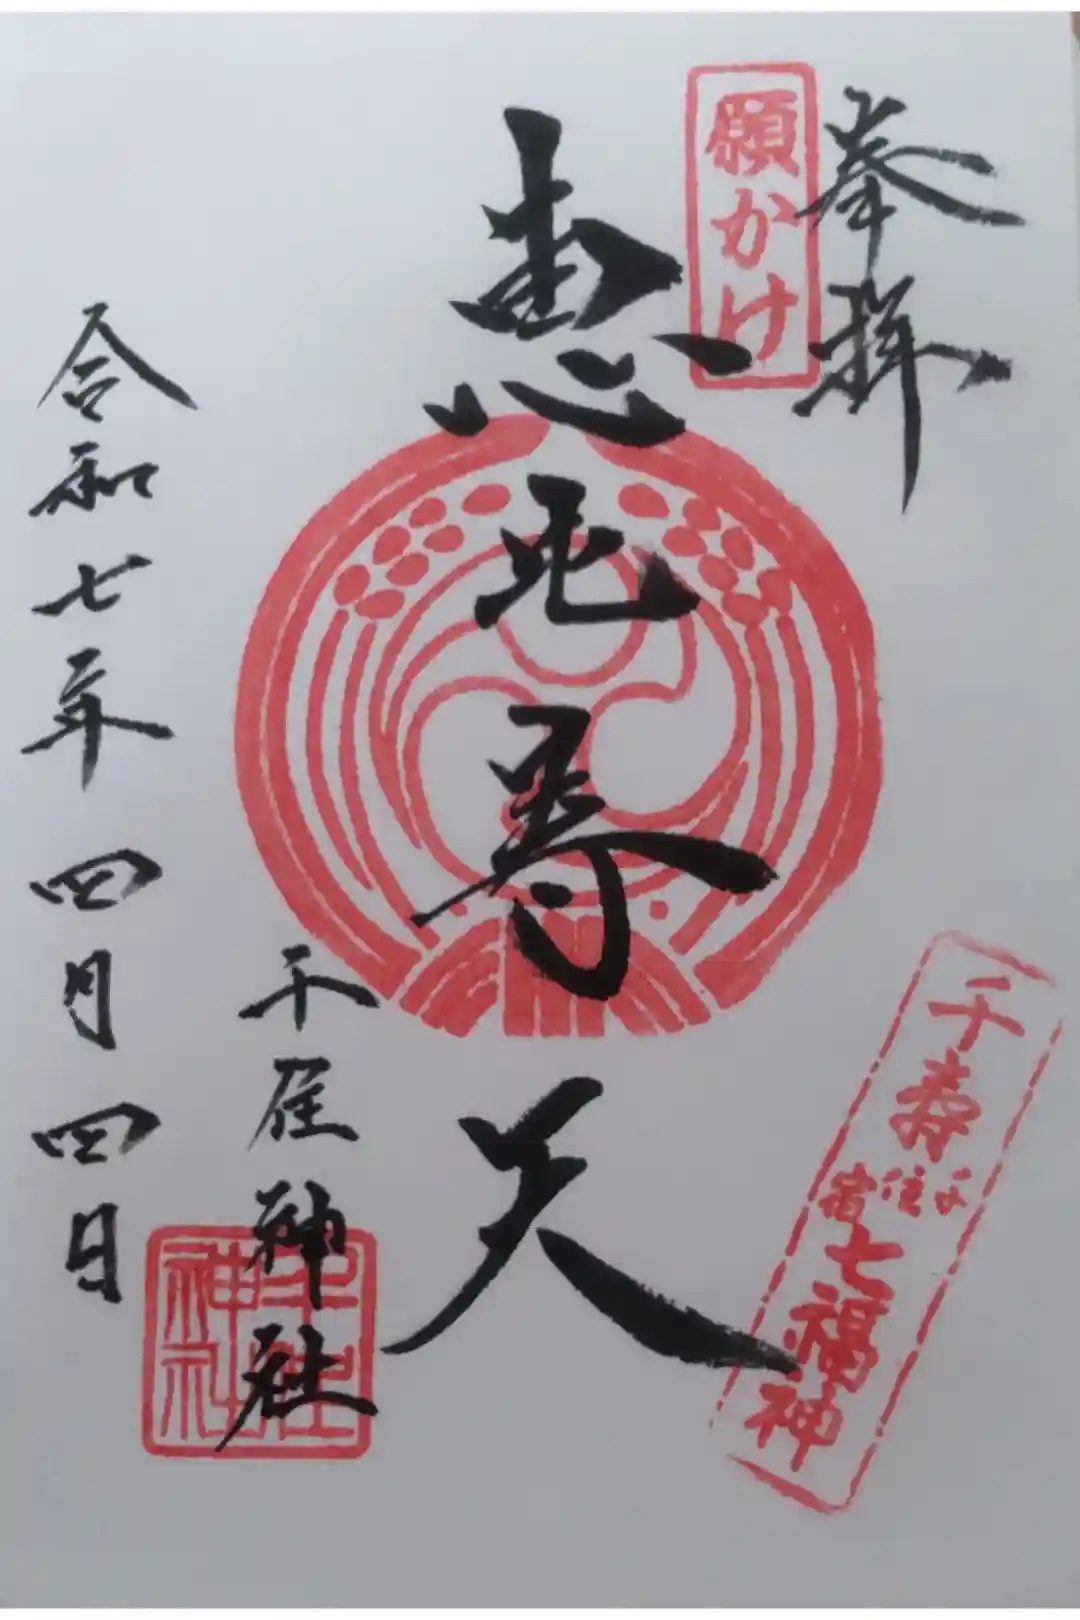 奉拝
願かけ
恵比寿天
千寿
千住宿
七福神
千住神社
千住神社
令和七年四月四日